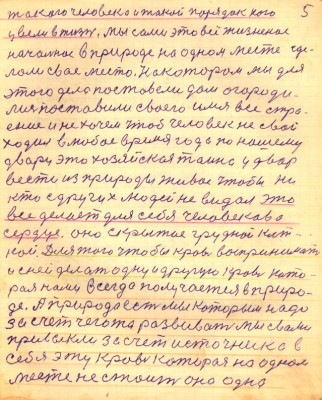 5
такого человека и такой порядок кого
увели в тюз. Мы сами это ей жизненое
началное в природе на одном месте сде-
лали свое место. На котором мы для
этого дело поставели дом огороди-
ли поставили своего имя все стро-
ение и не хочем чтоб человек не свой
ходил в любое время года по нашему
двару это хозяйская таина у двар
вести из природы живое чтобы ни
кто с других людей не видал это
все делает для себя человек а во
сердце. оно скрытое грудной клт-
кой. Для того чтобы кровь воспринимат
и с ней делат одну и другую кровь кото-
рая нами всегда получается в приро-
де. А природа есть мы которым надо
за счет чего то развиват мы с вами
привыкли за счет источника в
себя эту кровь которая на одном
месте не стоит она одна